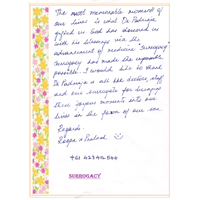 The most memorable moment of
our lives is what Dr Padmaja
gifted us God has showered us
with his blessings via the
advancement of medicine. "Surrogacy"
Surrogacy has made the impossible
possible. I would like to thank
Dr Padmaja & all the doctors, staff
and our surrogate for bringing
these joyous moments into our
lives in the form of our son
Regards
& Prahlad
SURROGACY